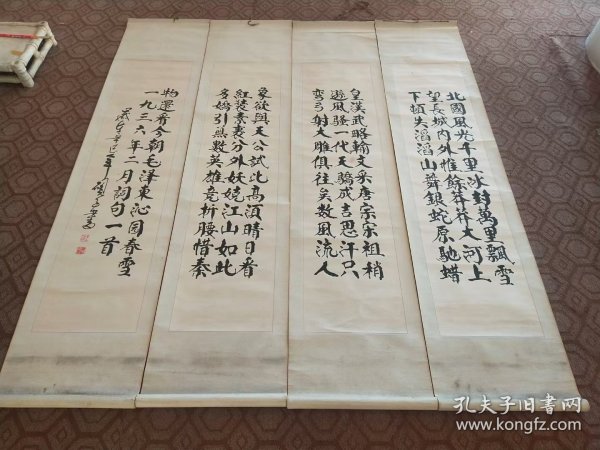 北國風光千里冰封萬里飄雪
望長城內外惟餘莽莽大河上
下頓失滔滔山舞銀蛇原馳蜡
皇漢武略輸文采唐宗宋祖稍
遜風騷一代天驕成吉思汗只
彎弓射大雕俱往矣數風流人
象欲與天公試比高須晴日看
紅裝素裹分外妖嬈江山如此
多嬌引無數英雄竞折腰惜秦
物還看今朝毛澤東沁园春雪
一九三六年二月詞句一首
孔夫子旧書网
www.kongfz.com